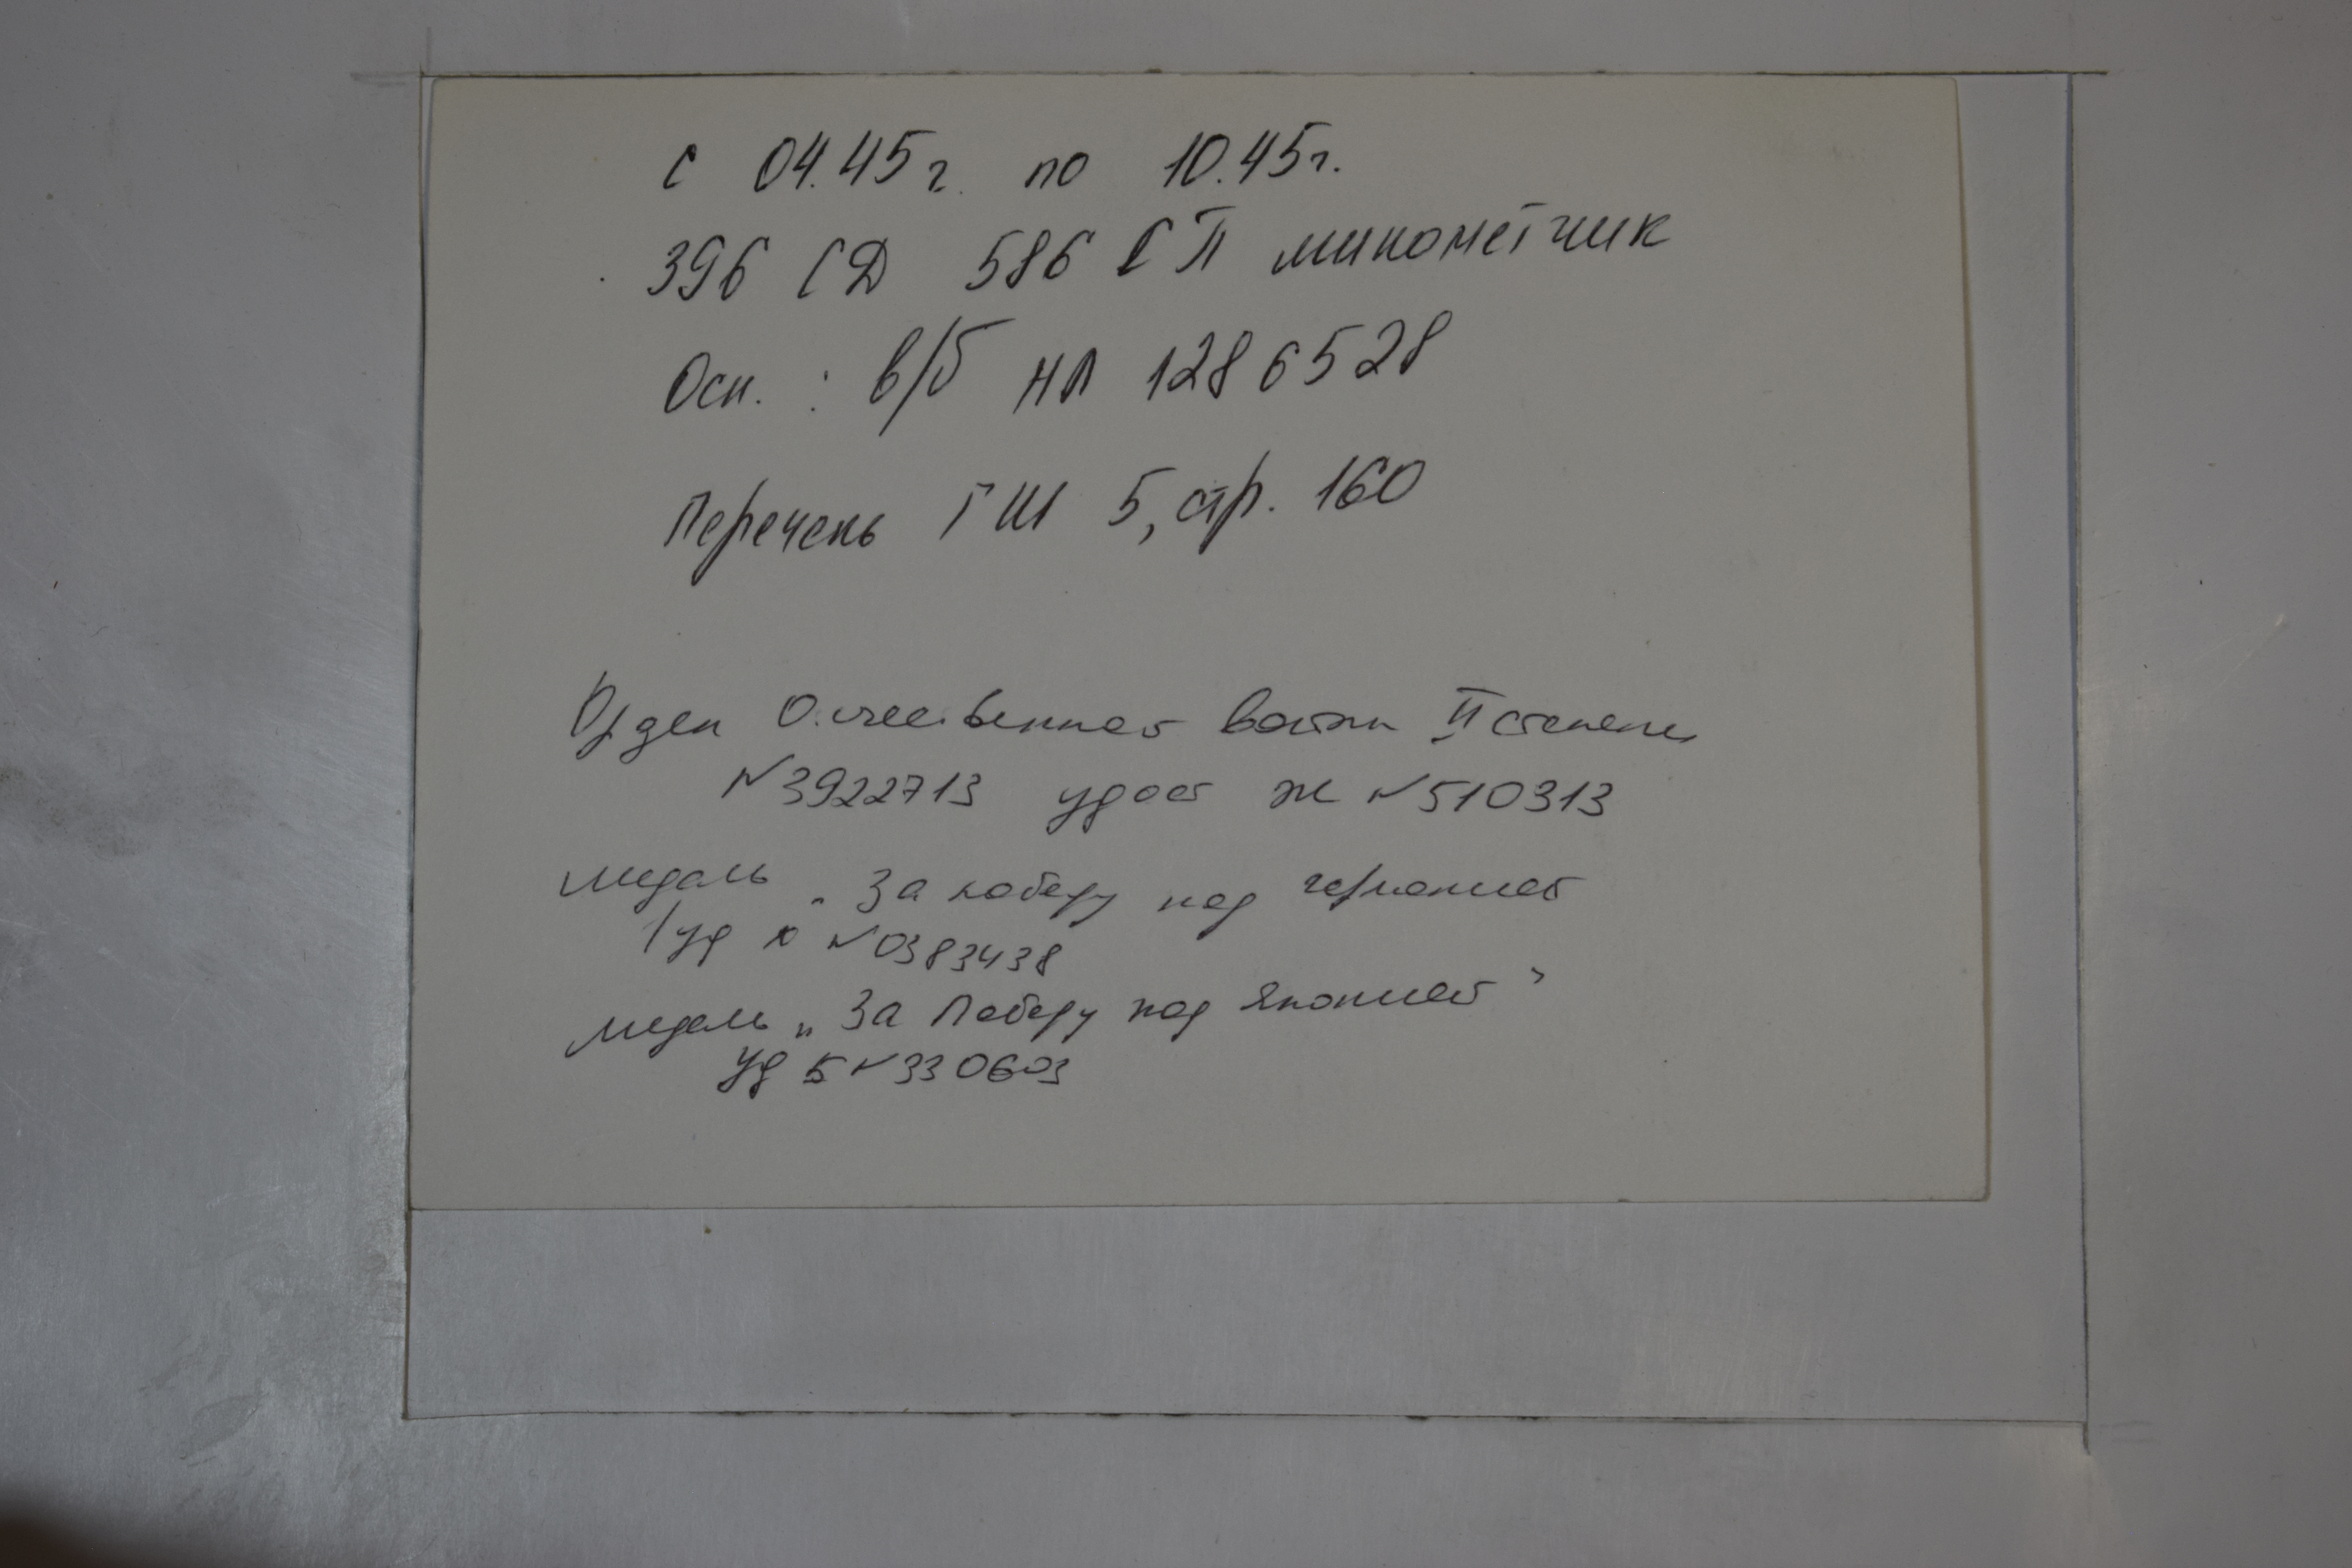 с 04.45г. по 10.45г.
396 СД 586 СП минометчик
Осн. : в/б НЛ 1286528
Перечень ГШ 5, стр. 160
Орден Отечественной войны II степени
№3922713 удост Ж №510313
медаль „За победу над германией
уд №0383438
медаль „За Победу над Японией"
уд Б №330603